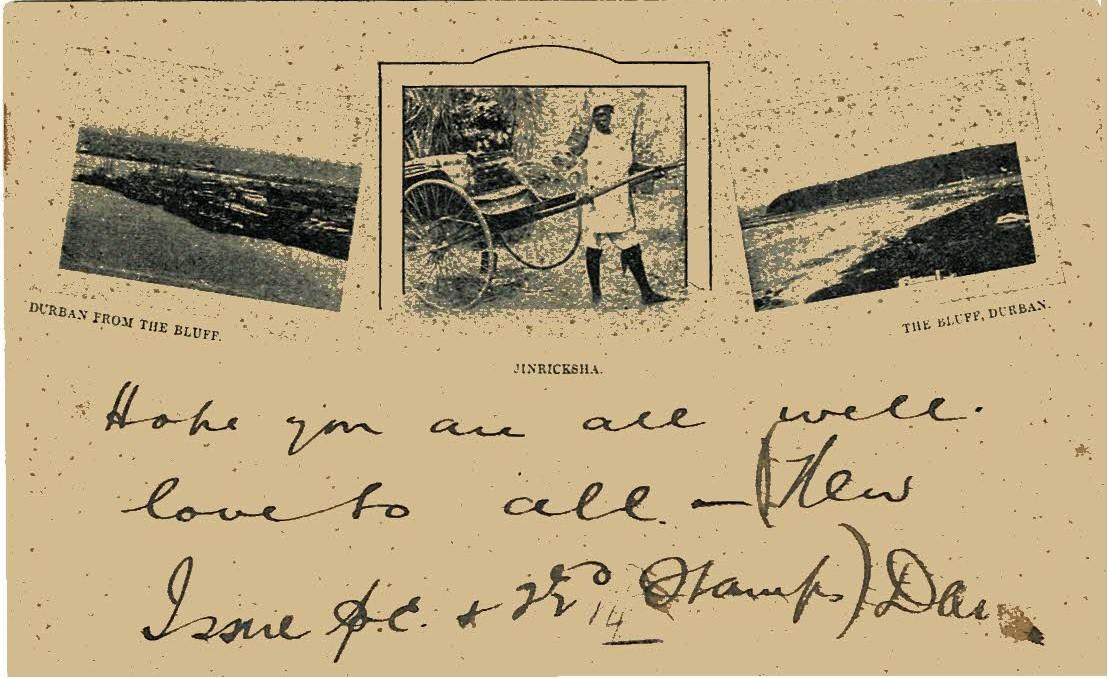 DURBAN FROM THE BLUFF.
JINRICKSHA.
THE BLUFF, DURBAN.
Hope you are all well.
love to all. — (New
Issue p.c. + Stamps)
14